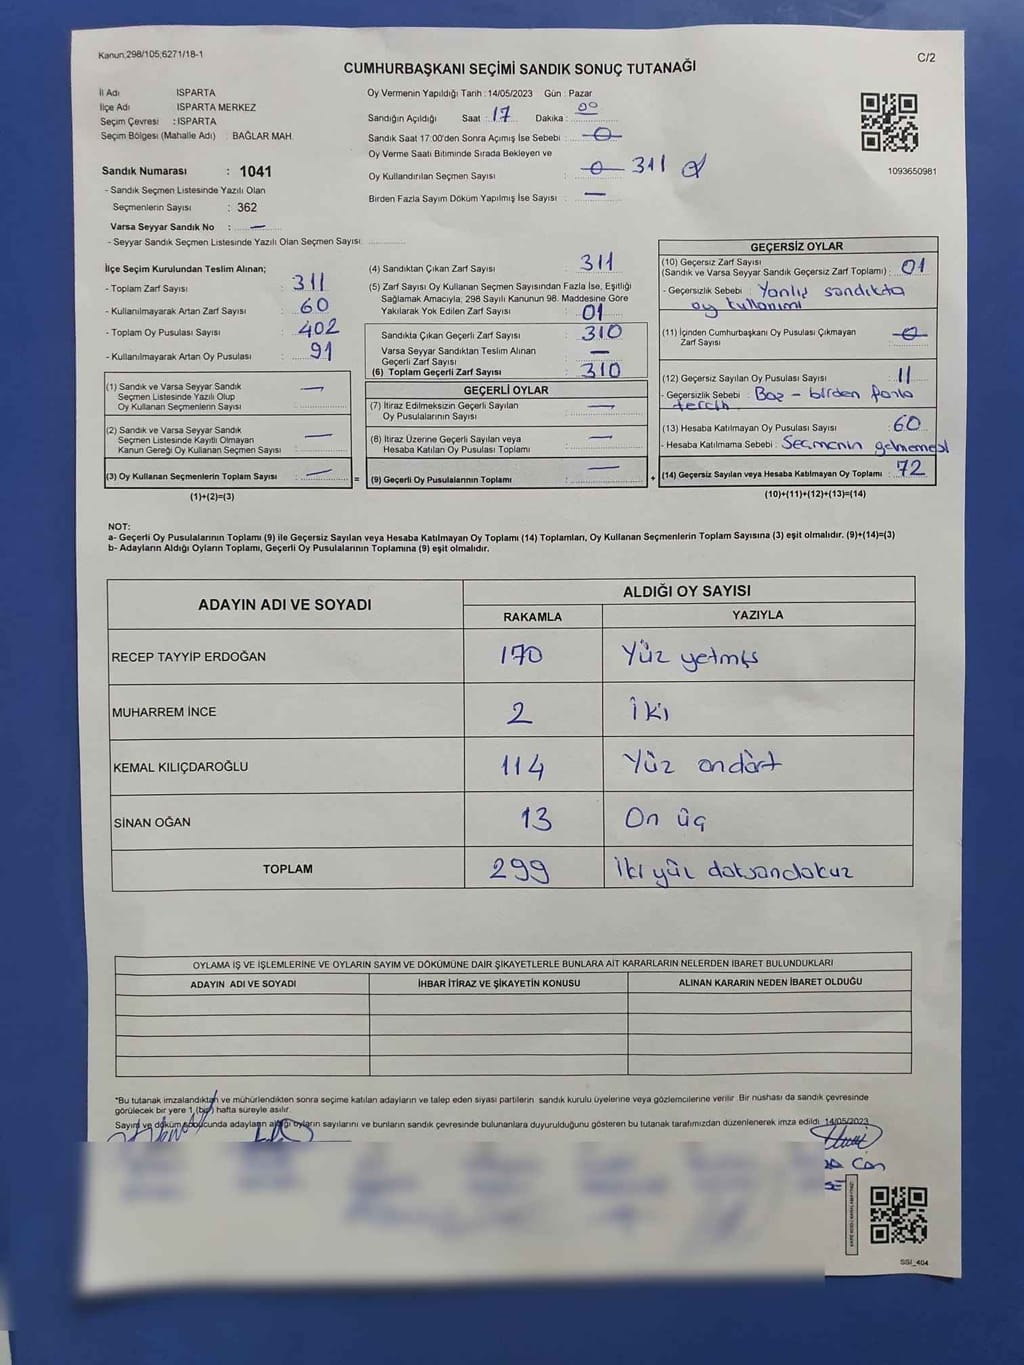 Kanun;298/105;6271/18-1
C/2
CUMHURBAŞKANI SEÇİMİ SANDIK SONUÇ TUTANAĞI
İl Adı ISPARTA
İlçe Adı ISPARTA MERKEZ
Seçim Çevresi : ISPARTA
Seçim Bölgesi (Mahalle Adı) : BAĞLAR MAH
Sandık Numarası : 1041
- Sandık Seçmen Listesinde Yazılı Olan
Seçmenlerin Sayısı : 362
Varsa Seyyar Sandık No : —
- Seyyar Sandık Seçmen Listesinde Yazılı Olan Seçmen Sayısı
Oy Vermenin Yapıldığı Tarih : 14/05/2023 Gün : Pazar
Sandığın Açıldığı Saat : 17 Dakika : 00
Sandık Saat 17:00'den Sonra Açımış İse Sebebi : 0
Oy Verme Saati Bitiminde Sırada Bekleyen ve
Oy Kullandırılan Seçmen Sayısı : 0 311
Birden Fazla Sayım Döküm Yapılmış İse Sayısı : —
1093650981
İlçe Seçim Kurulundan Teslim Alınan;
- Toplam Zarf Sayısı : 311
- Kullanılmayarak Artan Zarf Sayısı : 60
- Toplam Oy Pusulası Sayısı : 402
- Kullanılmayarak Artan Oy Pusulası : 91
(1) Sandık ve Varsa Seyyar Sandık
Seçmen Listesinde Yazılı Olup
Oy Kullanan Seçmenlerin Sayısı : —
(2) Sandık ve Varsa Seyyar Sandık
Seçmen Listesinde Kayıtlı Olmayan
Kanun Gereği Oy Kullanan Seçmen Sayısı : —
(3) Oy Kullanan Seçmenlerin Toplam Sayısı : —
(1)+(2)=(3)
(4) Sandıktan Çıkan Zarf Sayısı : 311
(5) Zarf Sayısı Oy Kullanan Seçmen Sayısından Fazla İse, Eşitliği
Sağlamak Amacıyla, 298 Sayılı Kanunun 98. Maddesine Göre
Yakılarak Yok Edilen Zarf Sayısı : 01
Sandıkta Çıkan Geçerli Zarf Sayısı : 310
Varsa Seyyar Sandıktan Teslim Alınan
Geçerli Zarf Sayısı : —
(6) Toplam Geçerli Zarf Sayısı : 310
GEÇERLİ OYLAR
(7) İtiraz Edilmeksizin Geçerli Sayılan
Oy Pusulalarının Sayısı : —
(8) İtiraz Üzerine Geçerli Sayılan veya
Hesaba Katılan Oy Pusulası Toplamı : —
= (9) Geçerli Oy Pusulalarının Toplamı : — +
GEÇERSİZ OYLAR
(10) Geçersiz Zarf Sayısı
(Sandık ve Varsa Seyyar Sandık Geçersiz Zarf Toplamı) : 01
- Geçersizlik Sebebi : Yanlış sandıkta
oy kullanımı
(11) İçinden Cumhurbaşkanı Oy Pusulası Çıkmayan
Zarf Sayısı : 0
(12) Geçersiz Sayılan Oy Pusulası Sayısı : 11
- Geçersizlik Sebebi : Boş - birden fazla
tercih
(13) Hesaba Katılmayan Oy Pusulası Sayısı : 60
- Hesaba Katılmama Sebebi : Seçmenin gelmemesi
(14) Geçersiz Sayılan veya Hesaba Katılmayan Oy Toplamı : 72
(10)+(11)+(12)+(13)=(14)
NOT:
a- Geçerli Oy Pusulalarının Toplamı (9) ile Geçersiz Sayılan veya Hesaba Katılmayan Oy Toplamı (14) Toplamları, Oy Kullanan Seçmenlerin Toplam Sayısına (3) eşit olmalıdır. (9)+(14)=(3)
b- Adayların Aldığı Oyların Toplamı, Geçerli Oy Pusulalarının Toplamına (9) eşit olmalıdır.
ADAYIN ADI VE SOYADI ALDIĞI OY SAYISI
RAKAMLA YAZIYLA
RECEP TAYYİP ERDOĞAN 170 Yüz yetmiş
MUHARREM İNCE 2 İki
KEMAL KILIÇDAROĞLU 114 Yüz ondört
SİNAN OĞAN 13 On üç
TOPLAM 299 İki yüz doksandokuz
OYLAMA İŞ VE İŞLEMLERİNE VE OYLARIN SAYIM VE DÖKÜMÜNE DAİR ŞİKAYETLERLE BUNLARA AİT KARARLARIN NELERDEN İBARET BULUNDUKLARI
ADAYIN ADI VE SOYADI İHBAR İTİRAZ VE ŞİKAYETİN KONUSU ALINAN KARARIN NEDEN İBARET OLDUĞU
*Bu tutanak imzalandıktan ve mühürlendikten sonra seçime katılan adayların ve talep eden siyasi partilerin sandık kurulu üyelerine veya gözlemcilerine verilir. Bir nüshası da sandık çevresinde
görülecek bir yere 1 (bir) hafta süreyle asılır.
Sayım ve döküm sonucunda adayların aldığı oyların sayılarını ve bunların sandık çevresinde bulunanlara duyurulduğunu gösteren bu tutanak tarafımızdan düzenlenerek imza edildi. 14/05/2023
Can
SSI_404